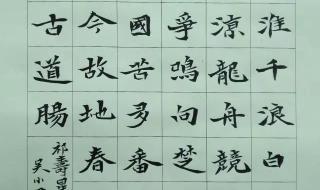 淮千浪白
涼龍舟競
爭鳴向楚
國苦多番
今故地春
古道腸
祁壽星
吳小